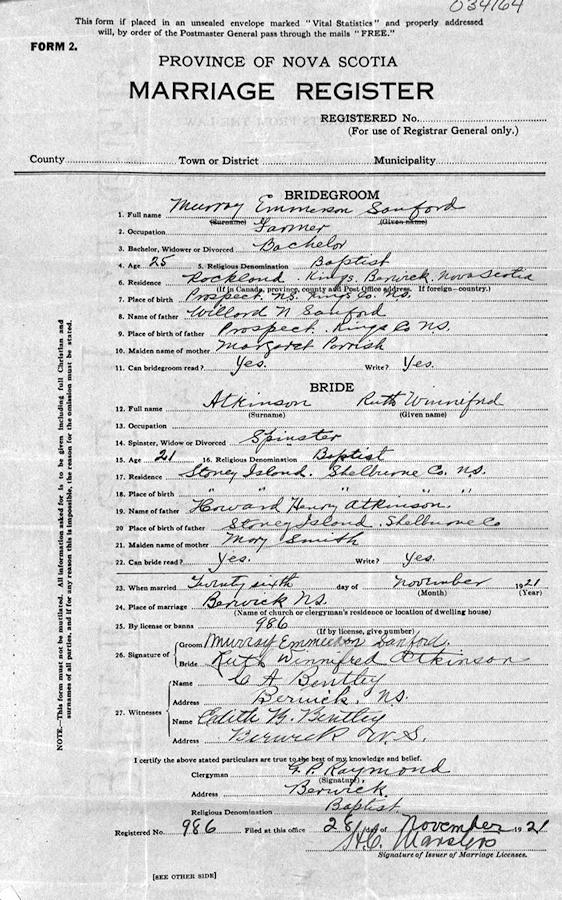 034164
This form if placed in an unsealed envelope marked "Vital Statistics" and properly addressed
will, by order of the Postmaster General pass through the mails "FREE."
FORM 2.
PROVINCE OF NOVA SCOTIA
MARRIAGE REGISTER
REGISTERED No.
(For use of Registrar General only.)
County Town or District Municipality
BRIDEGROOM
1. Full name Murray Emmerson Sanford
(Surname) (Given name)
2. Occupation Farmer
3. Bachelor, Widower or Divorced Bachelor
4. Age 25 5. Religious Denomination Baptist
6. Residence Rockland. Kings. Berwick. Nova Scotia
(If in Canada, province, county and Post Office address. If foreign—country.)
7. Place of birth Prospect. N.S. Kings Co. N.S.
8. Name of father Willard N Sanford
9. Place of birth of father Prospect. Kings Co N.S.
10. Maiden name of mother Margaret Parrish
11. Can bridegroom read? Yes. Write? Yes.
BRIDE
12. Full name Atkinson Ruth Winniford
(Surname) (Given name)
13. Occupation
14. Spinster, Widow or Divorced Spinster
15. Age 21 16. Religious Denomination Baptist
17. Residence Stoney Island. Shelburne Co. N.S.
18. Place of birth " " " "
19. Name of father Howard Henry Atkinson
20. Place of birth of father Stoney Island. Shelburne Co
21. Maiden name of mother Mary Smith
22. Can bride read? Yes. Write? Yes.
23. When married Twenty sixth day of November 1921
(Month) (Year)
24. Place of marriage Berwick N.S.
(Name of church or clergyman's residence or location of dwelling house)
25. By license or banns 986
(If by license, give number)
26. Signature of Groom Murray Emmerson Sanford.
Bride Ruth Winnifred Atkinson
27. Witnesses Name C A Bentley
Address Berwick, N.S.
Name Edith B. Bentley
Address Berwick N.S.
I certify the above stated particulars are true to the best of my knowledge and belief.
Clergyman G. P. Raymond
(Signature)
Address Berwick
Religious Denomination Baptist
Registered No. 986 Filed at this office 28 day of November 1921
H.C.
Signature of Issuer of Marriage Licenses.
[SEE OTHER SIDE]
NOTE.—This form must not be mutilated. All information asked for is to be given including full Christian and
surnames of all parties, and if for any reason this is impossible, the reason for the omission must be stated.